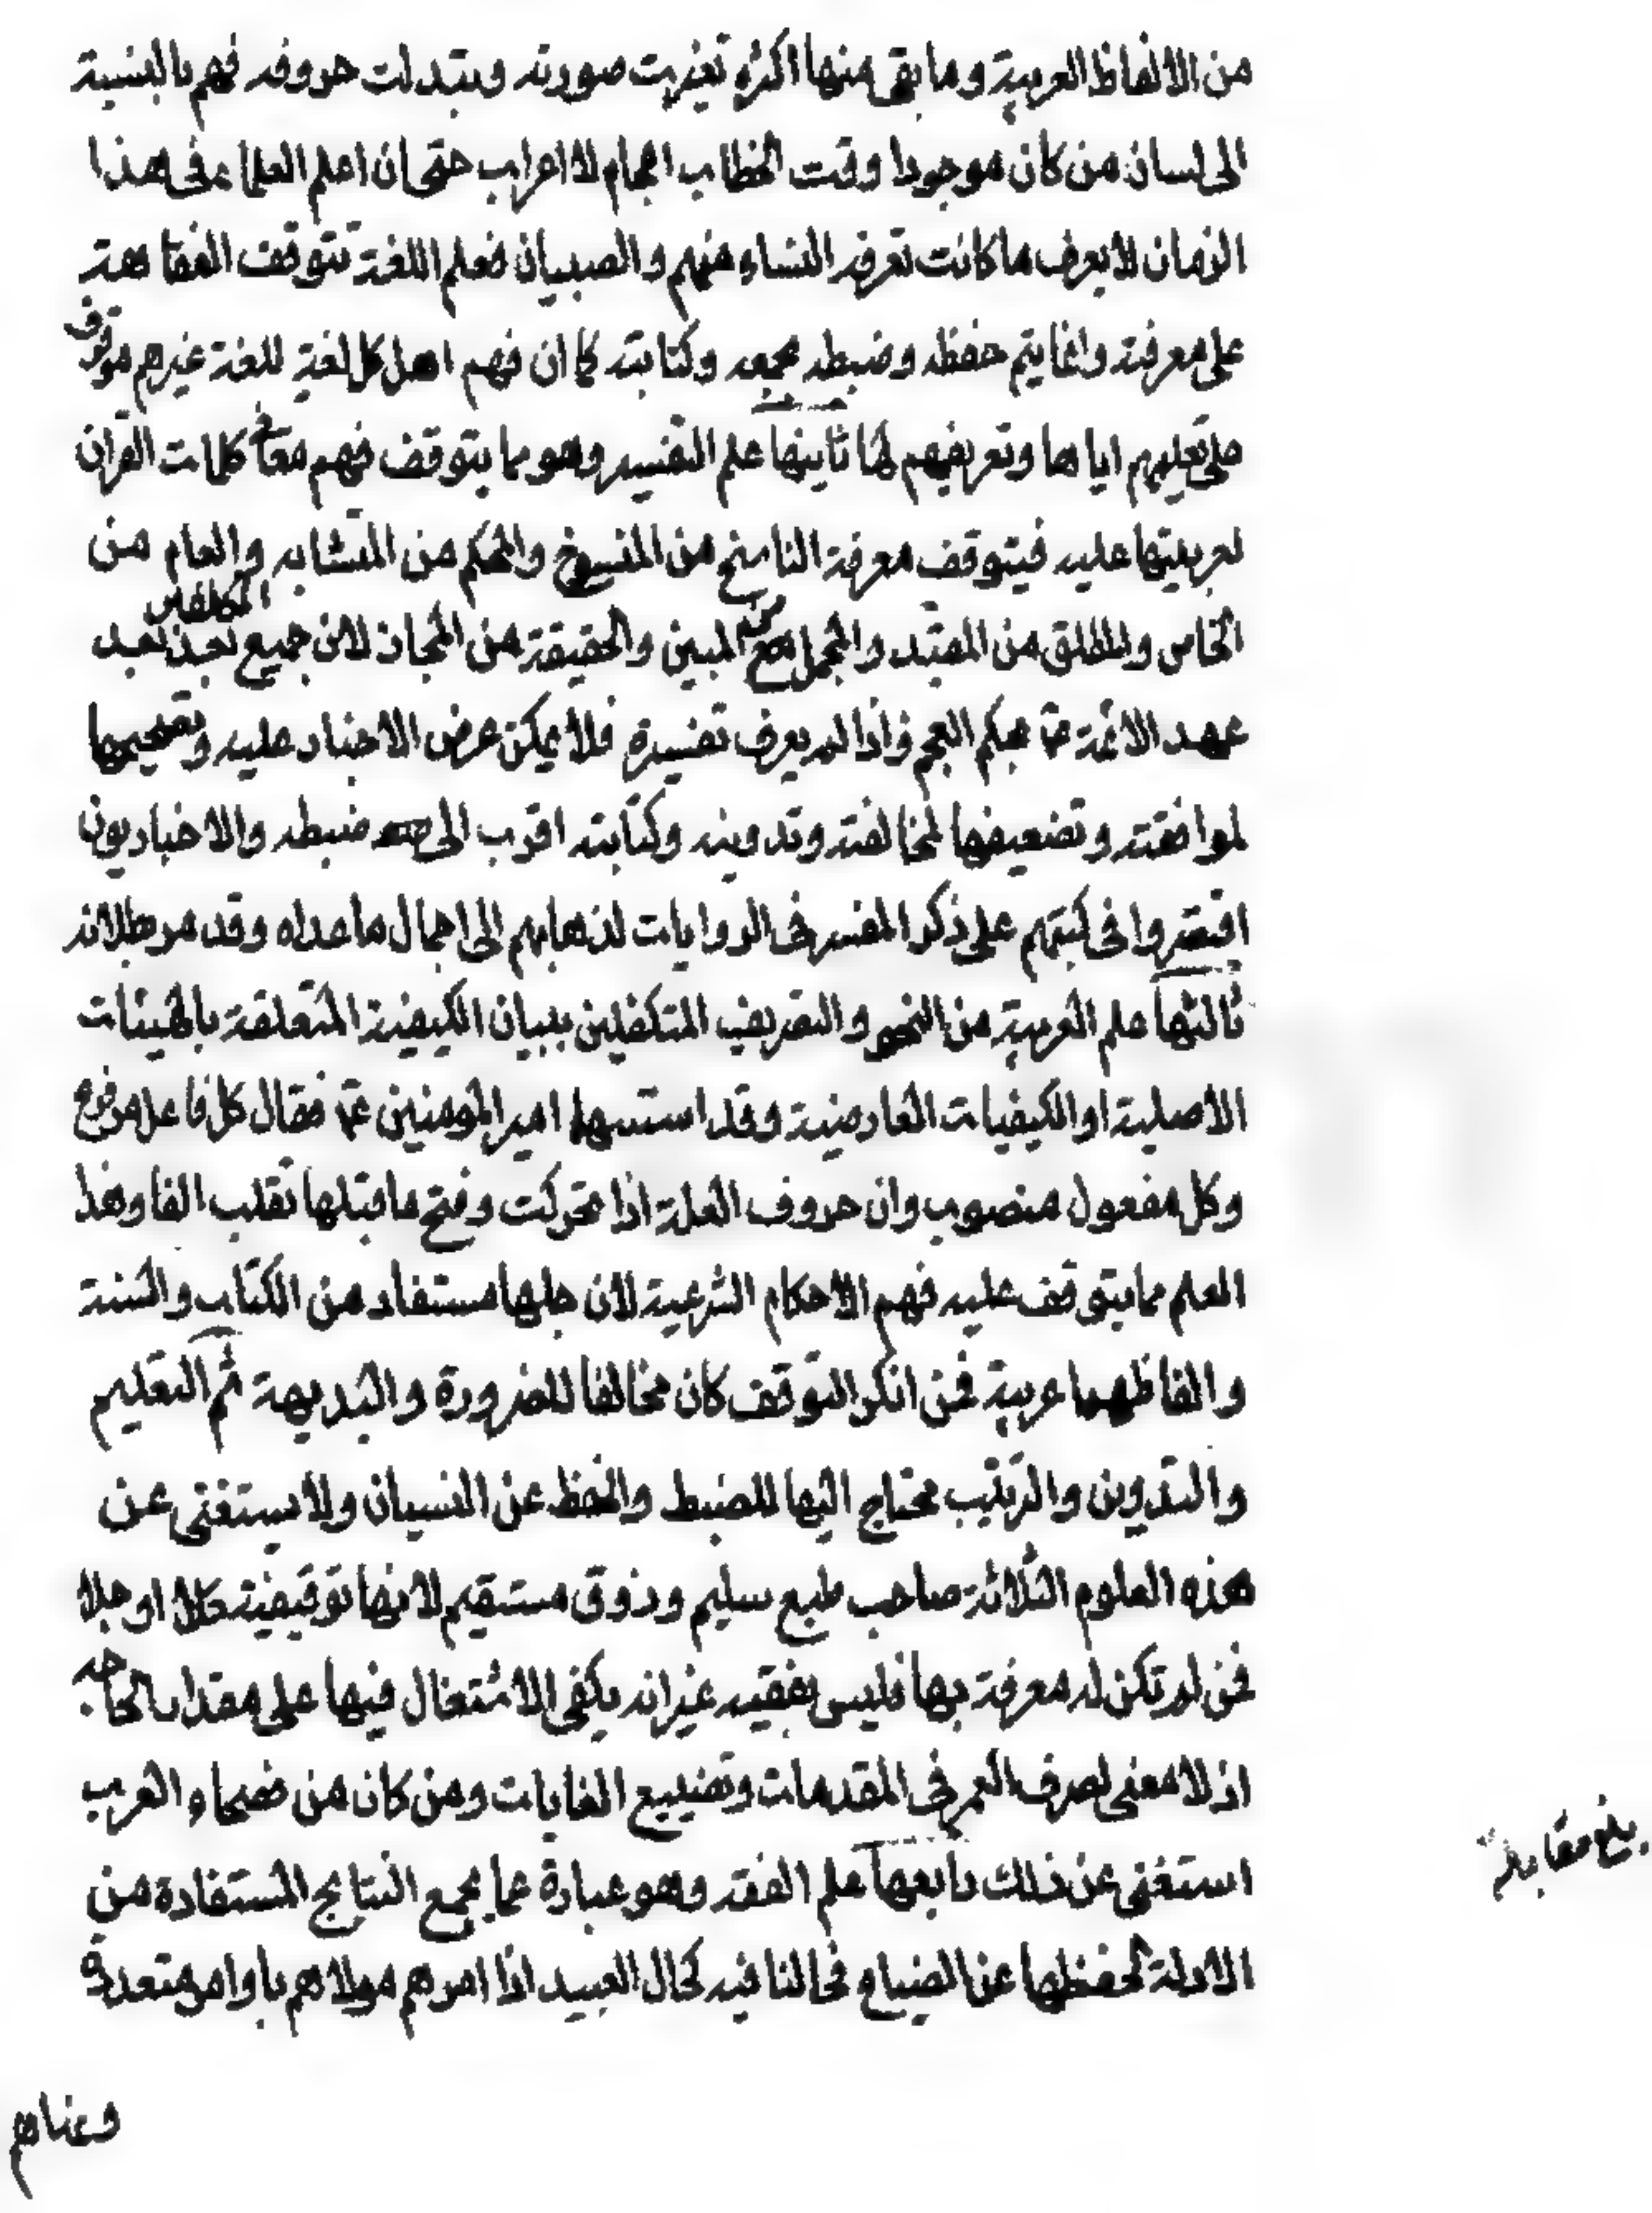 من الالفاظ العربية وما بقى منها اكثره تغيرت صورته وتبدلت حروفه فهم بالنسبة
الى لسان من كان موجودا وقت الخطاب اعجام لا اعراب حتى ان اعلم العلماء فى هذا
الزمان لا يعرف ما كانت تعرفه النساء منهم والصبيان فعلم اللغة تتوقف الفقاهة
على معرفته وانما يتم حفظه وضبطه بجمعه وكتابته كما ان فهم اهل كل لغة للغة غيرهم موقوف
على تعليمهم اياها وتعريفهم لها ثانيها علم التفسير وهو مما يتوقف فهم معانى كلمات القران
لعربيتها عليه فيتوقف معرفة الناسخ من المنسوخ والمحكم من المتشابه والعام من
الخاص والمطلق من المقيد والمجمل من المبين والحقيقة من المجاز لان جميع المكلفين بعد
عهد الائمة ع بحكم العجم فاذا لم يعرف تفسيره فلا يمكن عرض الاخبار عليه وتصحيحها
لموافقته وتضعيفها لمخالفته وتدوينه وكتابته اقرب الى ضبطه والاخباريون
اقتصروا فى كتبهم على ذكر المفسر فى الروايات لذهابهم الى اجمال ما عداه وقد مر بطلانه
ثالثها علم العربية من النحو والتصريف المتكفلين ببيان الكيفية المتعلقة بالهيئات
الاصلية او الكيفيات العارضية وقد استسهلها امير المؤمنين ع فقال كل فاعل مرفوع
وكل مفعول منصوب وان حروف العلة اذا تحركت وفتح ما قبلها تقلب الفا وهذا
العلم مما يتوقف عليه فهم الاحكام الشرعية لان جلها مستفاد من الكتاب والسنة
والفاظهما عربية فمن انكر التوقف كان مخالفا للضرورة والبديهة ثم التعليم
والتدوين والترتيب محتاج اليها للضبط والحفظ عن النسيان ولا يستغنى عن
هذه العلوم الثلاثة صاحب طبع سليم وذوق مستقيم لانها توقيفية كلا او جلا
فمن لم تكن له معرفة بها فليس بفقيه غير انه يكفى الاشتغال فيها على مقدار الحاجه
اذ لا معنى لصرف العمر فى المقدمات وتضييع الغايات ومن كان من فصحاء العرب
استغنى عن ذلك رابعها علم الفقه وهو عبارة عما يجمع النتايج المستفادة من
الادلة لحفظها عن الضياع فحالنا فيه كحال العبيد اذا امرهم مولاهم باوامر متعددة
بلغ مقابلة
وعناهم